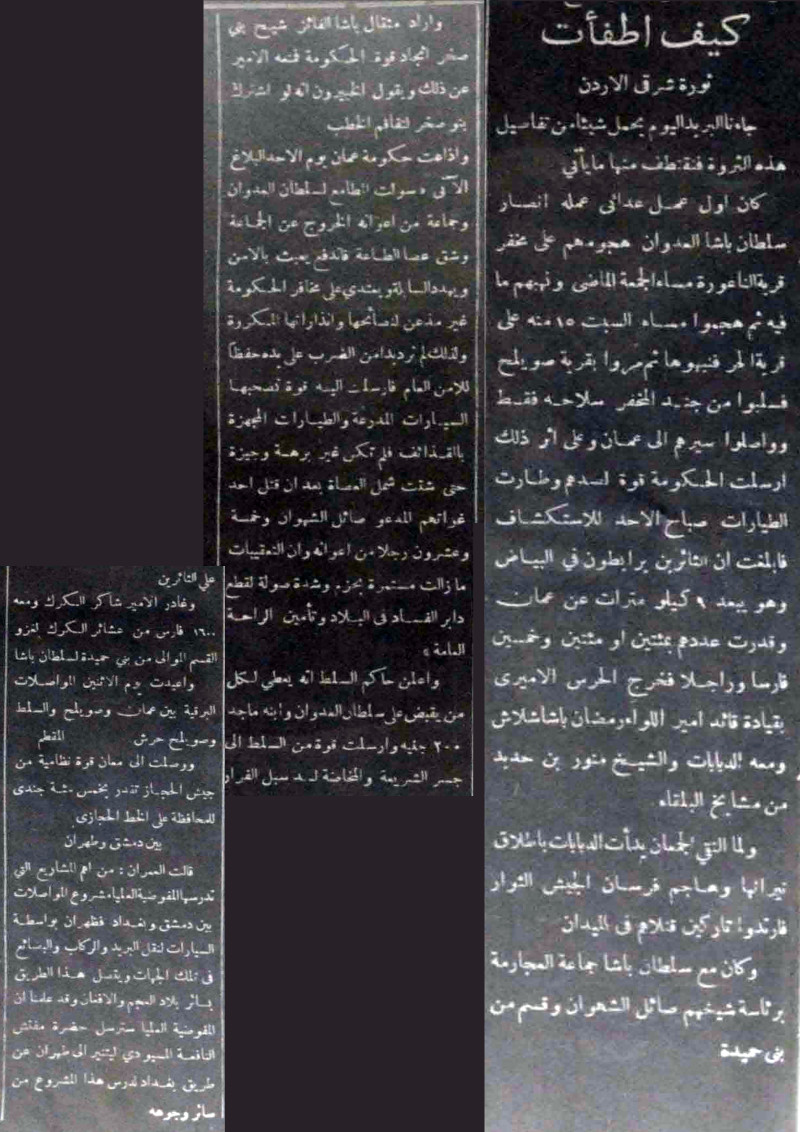 كيف اطفأت
ثورة شرقي الاردن
جاءنا البريد اليوم يحمل شيئا من تفاصيل
هذه الثروة فنقتطف منها ما يأتي
كان اول عمل عدائى عمله انصار
سلطان باشا العدوان هجومهم على مخفر
قرية الناعورة مساء الجمعة الماضى ونهبهم ما
فيه ثم هجموا مساء السبت ١٥ منه على
قرية الحمر فنهبوها ثم مروا بقرية صويلح
فسلبوا من جنيد المخفر سلاحه فقط
وواصلوا سيرهم الى عمان وعلى أثر ذلك
ارسلت الحكومة قوة لصدهم وطارت
الطيارات صباح الاحد للاستكشاف
فابلغت ان الثائرين يرابطون في البياض
وهو يبعد ٩ كيلو مترات عن عمان
وقدرت عددهم بمئتين او مئتين وخمسين
فارسا وراجلا فخرج الحرس الاميرى
بقيادة قائد امير اللواء رمضان باشا شلاش
ومعه الدبابات والشيخ منور بن حديد
من مشايخ البلقاء
ولما التقى الجمعان بدأت الدبابات باطلاق
نيرانها وهاجم فرسان الجيش الثوار
فارتدوا تاركين قتلاهم فى الميدان
وكان مع سلطان باشا جماعة العجارمة
برئاسة شيخهم صائل الشهوان وقسم من
بنى حميدة
واراد مثقال باشا الفائز شيخ بني
صخر انجاد قوة الحكومة فمنعه الامير
عن ذلك ويقول الخبيرون انه لو اشترك
بنو صخر لتفاقم الخطب
واذاعت حكومة عمان يوم الاحد البلاغ
الآتى « سولت المطامع لسلطان العدوان
وجماعة من اعوانه الخروج عن الجماعة
وشق عصا الطاعة فاندفع يعبث بالامن
ويهدد السابلة ويعتدي على مخافر الحكومة
غير مذعن لنصائحها وانذاراتها المتكررة
ولذلك لم تر بدا من الضرب على يده حفظا
للامن العام فارسلت اليه قوة تصحبها
السيارات المدرعة والطيارات المجهزة
بالقذائف فلم تكن غير برهة وجيزة
حتى شتت شمل العصاة بعد ان قتل احد
غواتهم المدعو صائل الشهوان وخمسة
وعشرون رجلا من اعوانه وان التعقيبات
ما زالت مستمرة بحزم وشدة صولة لقطع
دابر الفساد فى البلاد وتأمين الراحة
العامة »
واعلن حاكم السلط انه يعطي لكل
من يقبض على سلطان العدوان وابنه ماجد
٢٠٠ جنيه وارسلت قوة من السلط الى
جسر الشريعة والمخاضة لسد سبل الفرار
على الثائرين
وغادر الامير شاكر الكرك ومعه
١٦٠٠ فارس من عشائر الكرك لغزو
القسم الموالى من بني حميدة لسلطان باشا
واعيدت يوم الاثنين المواصلات
البرقية بين عمان وصويلح والسلط
وصويلح جرش المقطم
ووصلت الى معان قوة نظامية من
جيش الحجاز تقدر بخمس مئة جندى
للمحافظة على الخط الحجازى
بين دمشق وطهران
قالت العمران : من اهم المشاريع التي
تدرسها المفوضية العليا مشروع المواصلات
بين دمشق وبغداد فطهران بواسطة
السيارات لنقل البريد والركاب والبضائع
فى تلك الجهات ويتصل هذا الطريق
بسائر بلاد العجم والافغان وقد علمنا ان
المفوضية العليا سترسل حضرة مفتش
النافعة المسيو دي ليتنير الى طهران عن
طريق بغداد لدرس هذا المشروع من
سائر وجوهه